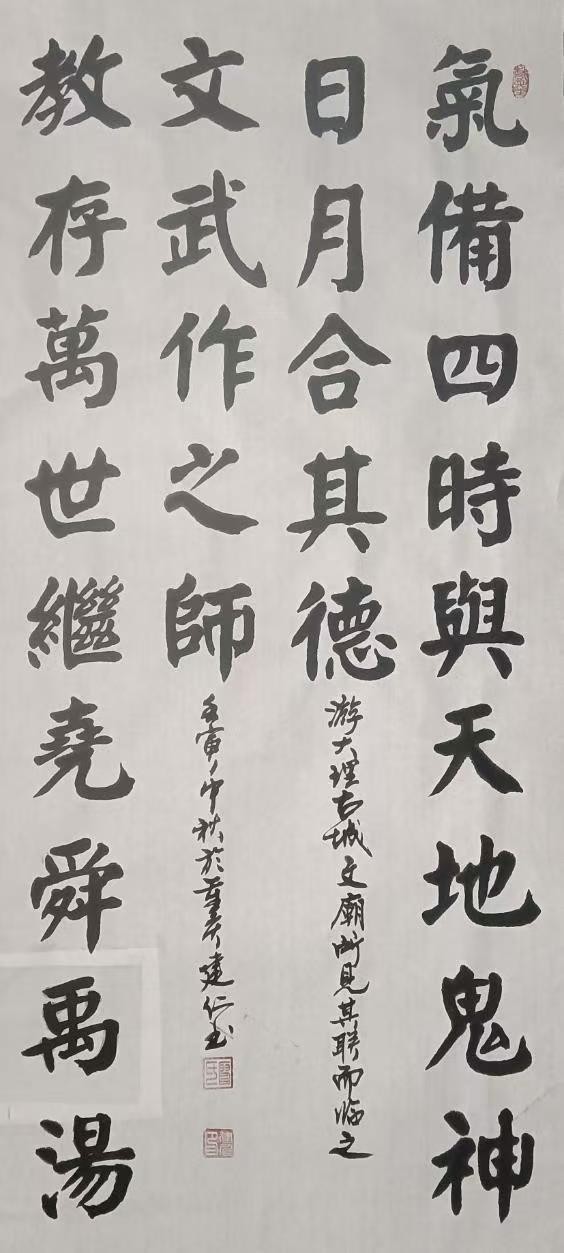 氣備四時與天地鬼神
日月合其德
游大理古城文廟所見其聯而临之
教存萬世繼堯舜禹湯
文武作之師
壬寅中秋於重庆建仁书